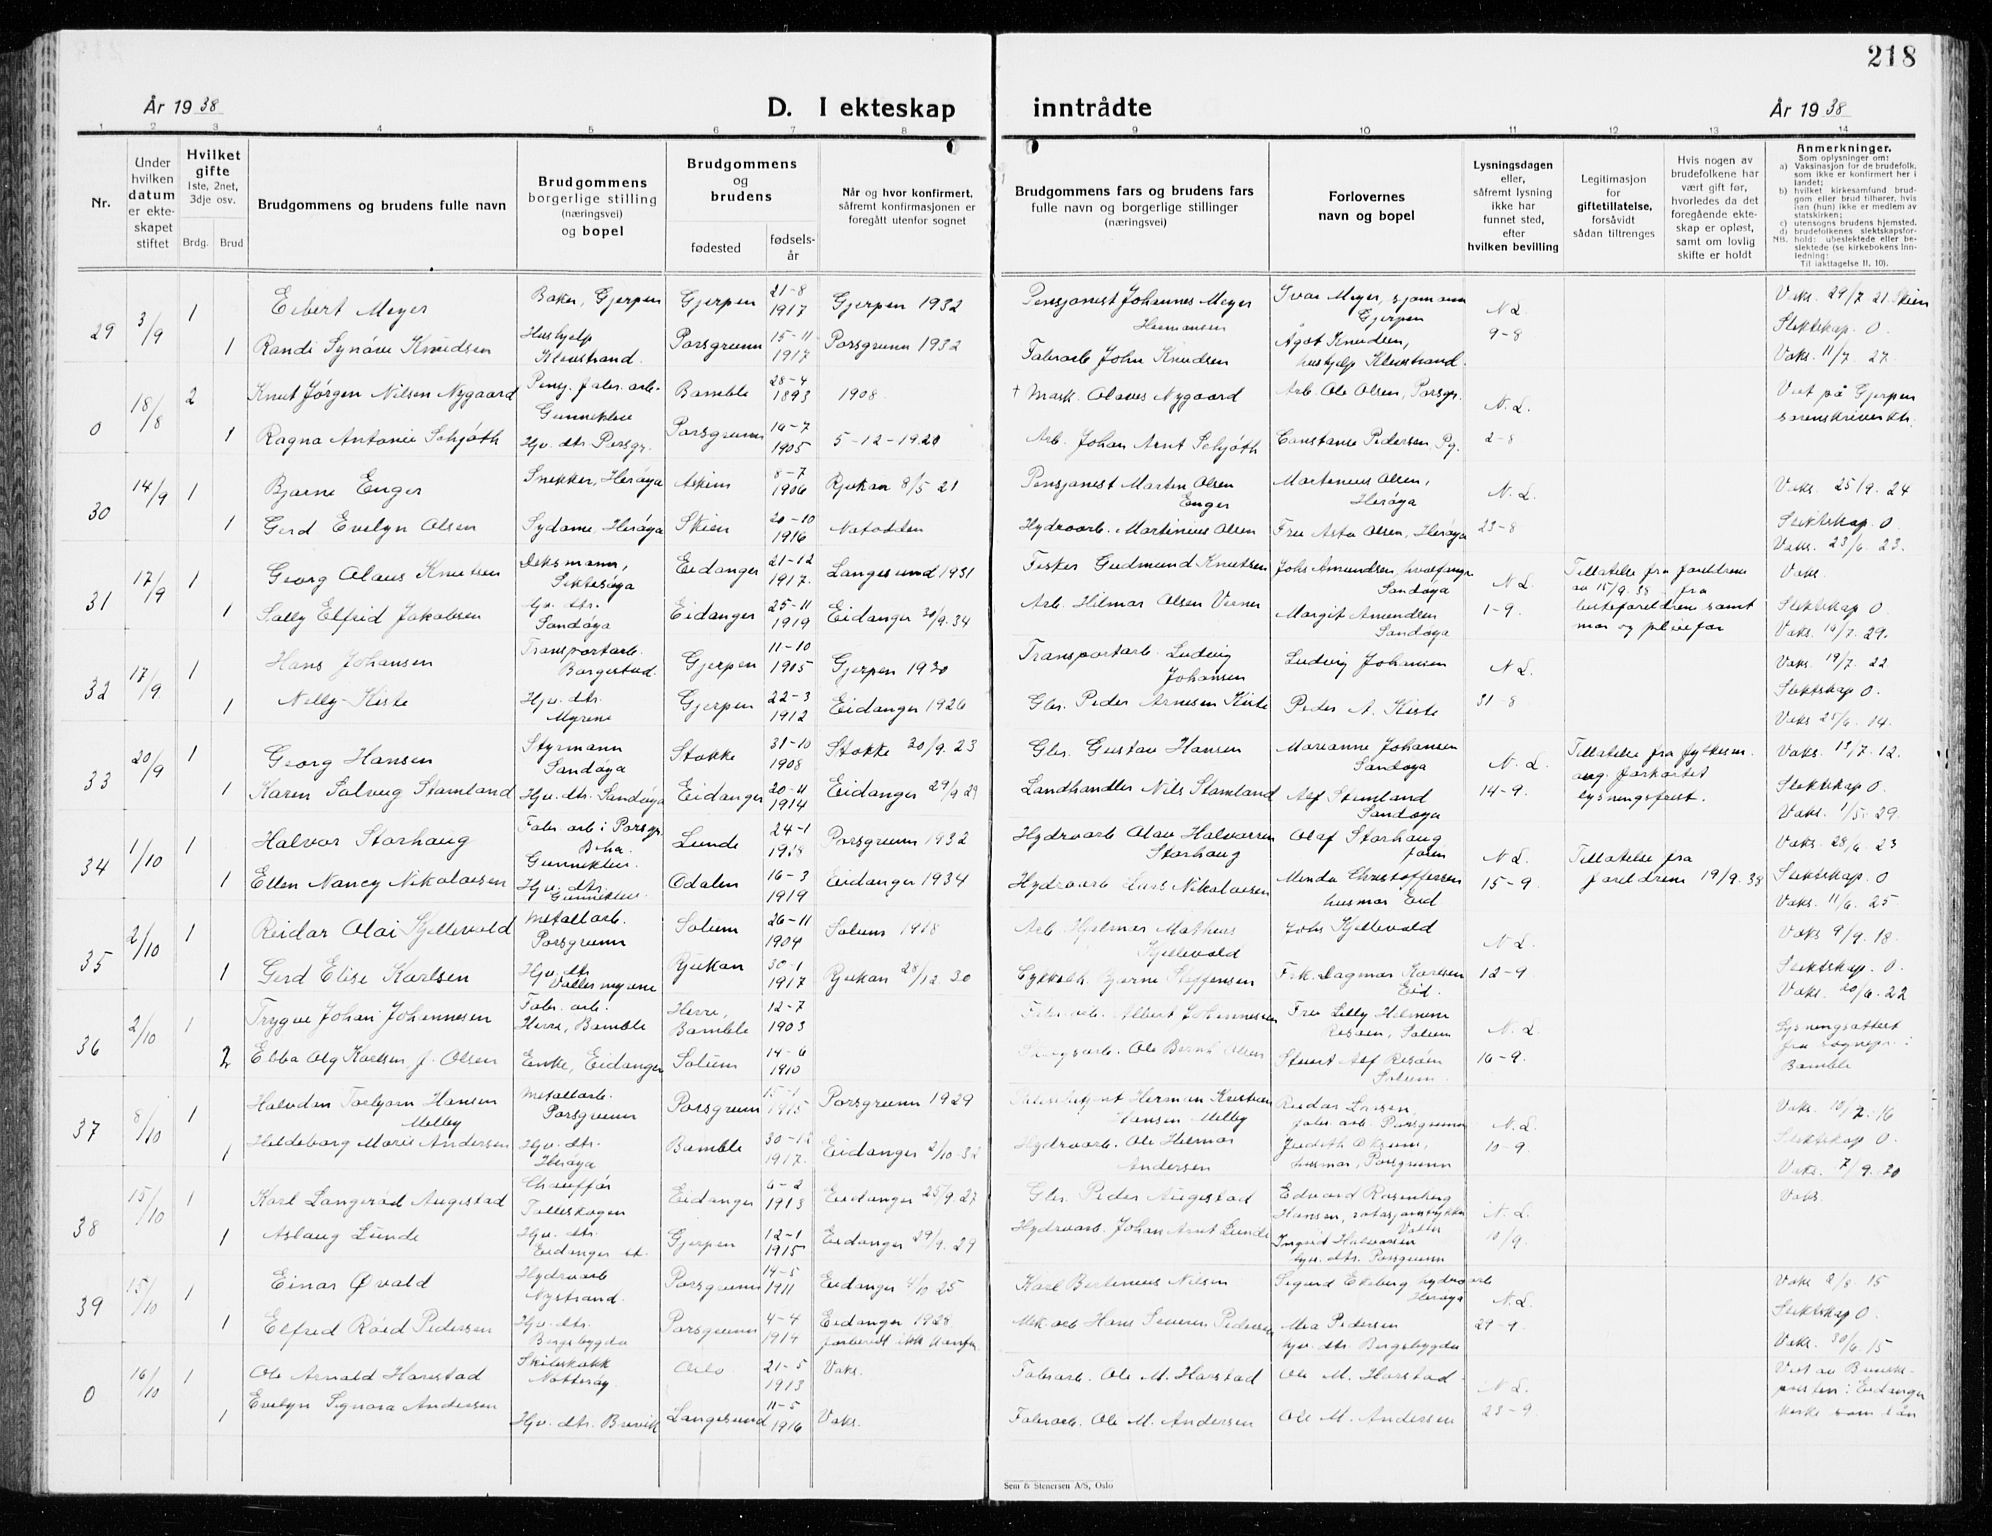 218
År 1938
D. I ekteskap inntrådte
År 1938
1 2 3 4 5 6 7 8 9 10 11 12 13 14
Nr.
Under hvilken datum er ekteskapet stiftet
Hvilket gifte
1ste, 2net, 3dje osv.
Brdg. Brud
Brudgommens og brudens fulle navn
Brudgommens borgerlige stilling (næringsvei) og bopel
Brudgommens og brudens
fødested
fødsels-år
Når og hvor konfirmert, såfremt konfirmasjonen er foregått utenfor sognet
Brudgommens fars og brudens fars fulle navn og borgerlige stillinger (næringsvei)
Forlovernes navn og bopel
Lysningsdagen eller, såfremt lysning ikke har funnet sted, efter hvilken bevilling
Legitimasjon for giftetillatelse, forsåvidt sådan tiltrenges
Hvis nogen av brudefolkene har vært gift før, hvorledes da det foregående ekteskap er opløst, samt om lovlig skifte er holdt
Anmerkninger.
Som oplysninger om:
a) Vaksinasjon for de brudefolk, som ikke er konfirmert her i landet;
b) hvilket kirkesamfund brudgom eller brud tilhører, hvis han (hun) ikke er medlem av statskirken;
c) utensogns brudens hjemsted.
d) brudefolkenes slektskapsforhold: ubeslektede eller beslektede (se kirkebokens innledning:
NB. Til iakttagelse II, 10).
29 3/9 1 Eibert Meyer Baker, Gjerpen Gjerpen 21-8 1917 Gjerpen 1932 Pensjonist Johannes Meyer Hermansen Ivar Meyer, sjømann Gjerpen N.L. 9-8 Vaks. 29/7 21. Skien
Slektskap. 0.
1 Randi Synøve Knudsen Hushjelp Klevstrand. Porsgrunn 15-11 1917 Porsgrunn 1932 Fabrarb John Knudsen Ågot Knudsen, hushjelp Klevstrand. Vaks. 11/7. 27.
0 18/8 2 Knut Jørgen Nilsen Nygaard Pensj. fabr. arb. Gunneklev Bamble 28-4 1893 1908. † Mask. Olaves Nygaard Arb. Ole Olsen, Porsgr. N.L. 2-8 Viet på Gjerpen sorenskriverktr.
1 Ragna Antonie Schjøth Hjv. dtr. Porsgr. Porsgrunn 16-7 1905 5-12-1920 Arb. Johan Arnt Schjøth Constanse Pedersen, Pg.
30 14/9 1 Bjarne Enger Snekker, Herøya Askim 8-7 1906 Rjukan 8/5 21 Pensjonist Marten Olsen Enger Martinius Olsen, Herøya N.L. 23-8 Vaks. 25/9. 24
Slektskap. 0
1 Gerd Evelyn Olsen Sydame, Herøya Skien 20-10 1916 Notodden Hydroarb. Martinius Olsen Fru Asta Olsen, Herøya Vaks. 23/6. 23.
31 17/9 1 Georg Olaus Knutsen Dekksmann, Siktesøya Eidanger 21-12 1917. Langesund 1931 Fisker Gudmund Knutsen Johs Amundsen, hvalfanger Sandøya N.L. 1-9. Tillatelse fra foreldrene av 15/9. 38 - fra besteforeldrene samt mor og pleiefar Vaks.
Slektskap 0.
1 Sally Elfrid Jakobsen Hjv. dtr. Sandøya Eidanger 25-11 1919 Eidanger 30/9. 34 Arb. Hilmar Olsen Verner Margit Amundsen Sandøya Vaks. 19/7. 29.
32 17/9 1 Hans Johansen Transportarb. Borgestad. Gjerpen 11-10 1905 Gjerpen 1920 Transportarb. Ludvig Johansen Ludvig Johansen N.L. 31-8 Vaks. 19/7. 22
Slektskap 0.
1 Nelly Kiste Hjv. dtr. Myrene Gjerpen 22-3 1912 Eidanger 1926 Gbr. Peder Arnesen Kiste Peder A. Kiste Vaks 25/6. 14.
33 20/9 1 Georg Hansen Styrmann Sandøya Stokke 31-10 1908 Stokke 30/9. 23 Gbr. Gustav Hansen Marianne Johansen Sandøya N.L. 14-9. Tillatelse fra fylkesm. ang. forkortet lysningsfrist. Vaks. 13/7. 12.
Slektskap 0
1 Karen Solveig Stamland Hjv. dtr. Sandøya Eidanger 20-11 1914 Eidanger 29/9 29 Landhandler Nils Stamland Alf Stamland Sandøya Vaks. 1/5. 29.
34 1/10 1 Halvor Storhaug Fabr. arb i Porsgr. Gunneklev. Lunde 24-1 1918 Porsgrunn 1932 Hydroarb Olav Halvorsen Storhaug Olaf Storhaug N.L. 15-9. Tillatelse fra foreldrene 19/9. 38 Vaks. 28/6. 23
Slektskap. 0
1 Ellen Nancy Nikolaisen Hjv. dtr. Gunneklev. Odalen 16-3 1919 Eidanger 1934 Hydroarb Lars Nikolaisen Minda Christoffersen husmor Eid. Vaks. 11/6. 25.
35 2/10 1 Reidar Olai Kjellevold Metallarb. Porsgrunn Solum 26-11 1904 Solum 1918 Arb. Hjelmar Mathius Kjellevold Johs Kjellevold N.L. 12-9 Vaks 9/9. 18.
Slektskap. 0.
1 Gerd Elise Karlsen Hjv. dtr. Vallermyrene Rjukan 30-1 1917 Rjukan 28/12. 30 Bjarne Steffensen Frk. Dagmar Karlsen Eid. Vaks. 20/6. 22
36 2/10 1 Trygve Johan Johannesen Fabr. arb. Herre, Bamble Herre, Bamble 12-7 1903 Fabrarb. Albert Johannesen Fru Lilly Helmine Solum N.L. 16-9. Lysningsattest fra sognepr. i Bamble
2 Ebba Olg Karlsen f. Olsen Enke, Eidanger Solum 14-6 1910 Skogsarb. Ole Bernh Olsen Alf Solum.
37 8/10 1 Halvdan Torbjørn Hansen Melby Metallarb. Porsgrunn Porsgrunn 15-1 1915 Porsgrunn 1929 Herman Kristian Hansen Melby Reidar Larsen, fabr. arb. Porsgrunn N.L. 10-9. Vaks. 10/7. 16
Slektskap 0.
1 Hildeborg Marie Andersen Hjv. dtr. Herøya Bamble 30-12 1917. Eidanger 2/10-32 Hydroarb. Ole Hilmar Andersen Judith husmor, Porsgrunn Vaks. 7/9. 20
38 15/10 1 Karl Langerød Augestad Chauffør Tolleskogen Eidanger 6-2 1913 Eidanger 25/9. 27 Gbr. Peder Augestad Edvard Rosenberg Hansen, N.L. 10/9. Vaks.
1 Aslaug Lunde Hjv. dtr. Eidanger st. Gjerpen 12-1 1915 Eidanger 29/9. 29 Hydroarb. Johan Arnt Lunde Ingrid Halvorsen hjv. dtr. Porsgrunn
39 15/10 1 Einar Øvald Hydroarb Nystrand. Porsgrunn 14-5 1911 Eidanger 4/10 25 Karl Berlinius Nilsen Sigurd Ekeberg hydroarb Herøya N.L. 29-9. Vaks 2/8. 15
Slektskap 0.
1 Elfred Roid Pedersen Hjv. dtr. Bergsbygda Porsgrunn 4-4 1914 Eidanger 1928 forberedt ikke konfir. Mek arb Hans Severin Pedersen Mia Pedersen hjv. dtr. Bergsbygda Vaks. 30/6. 15
0 16/10 1 Ole Arnold Harstad Nøtterøy. Oslo 21-5 1913 Vaks. Fabrarb. Ole M. Harstad Ole M. Harstad N.L. 23-9. Viet av i Eidanger kirke som lån
1 Evelyn Signora Andersen Hjv. dtr. Brevik Langesund 11-5 1916 Vaks. Fabrarb. Ole M. Andersen Ole M. Andersen
Sem & Stenersen A/S, Oslo